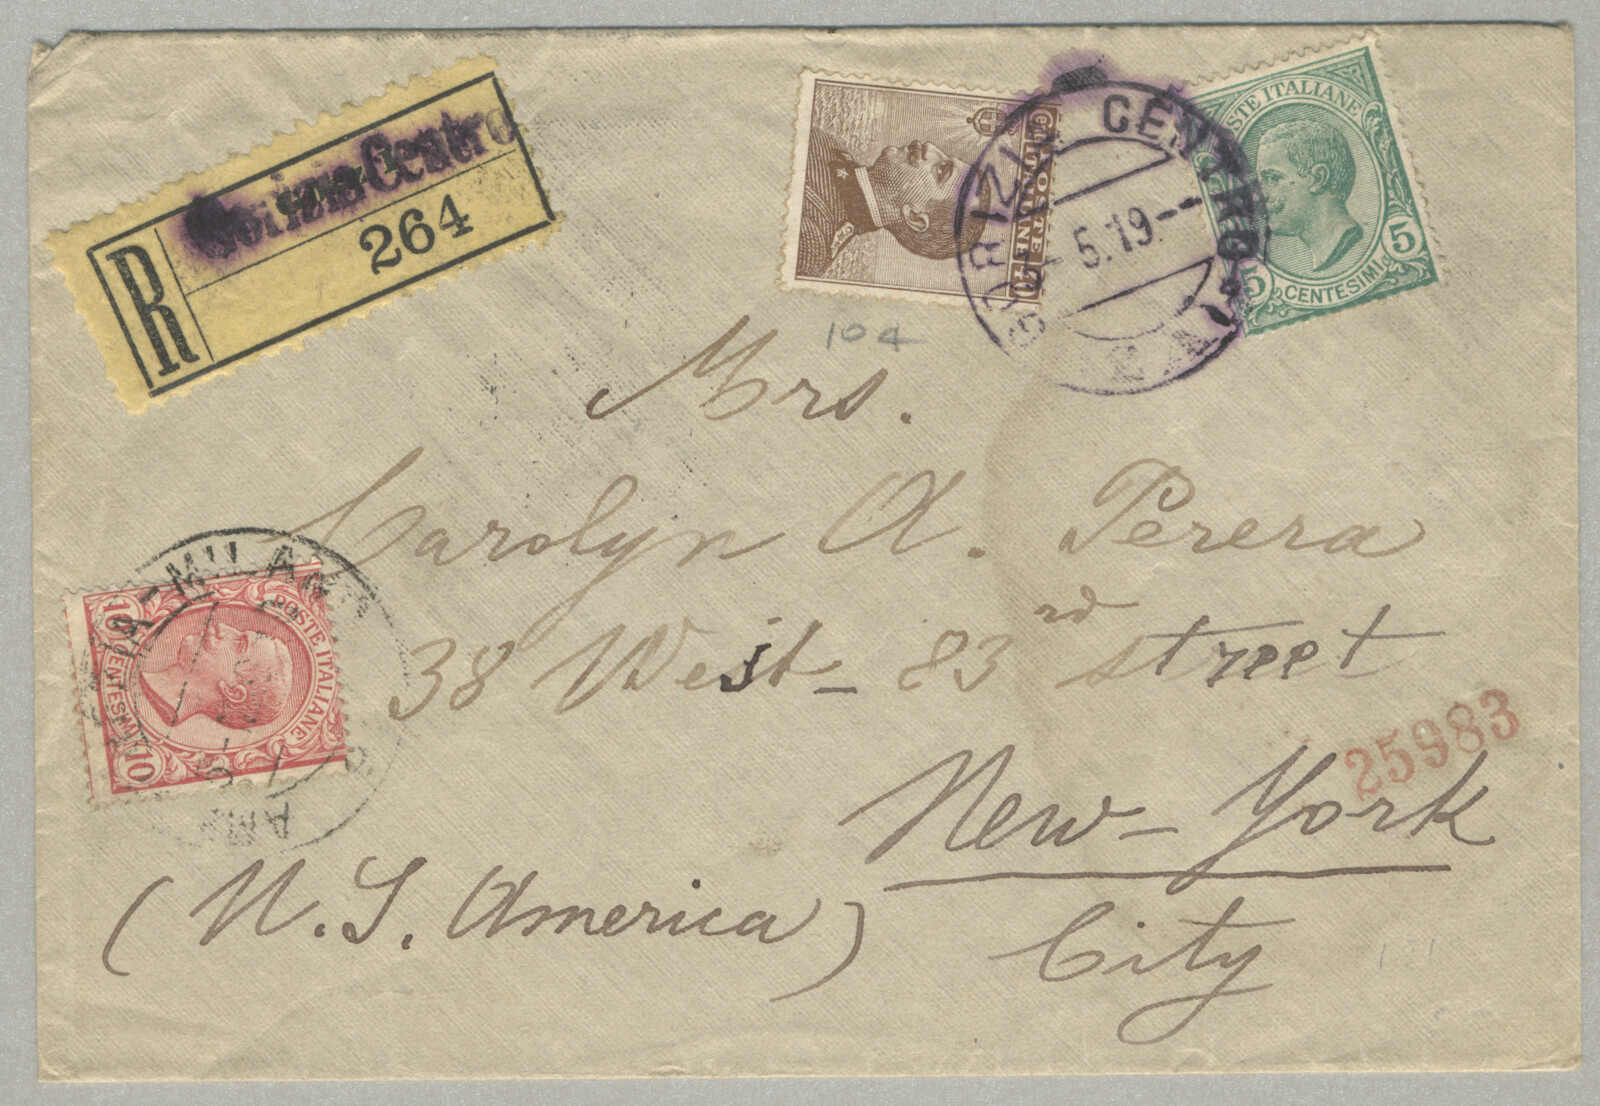 Gorizia Centro
R
264
POSTE ITALIANE
Cent. 40
GORIZIA CENTRO
5.19
POSTE ITALIANE
5 5
CENTESIMI
104
Mrs.
Carolyn A. Perera
38 West - 83rd street
New-York
City
(U. S. America)
25983
POSTE ITALIANE
10 10
CENTESIMI
MILANO